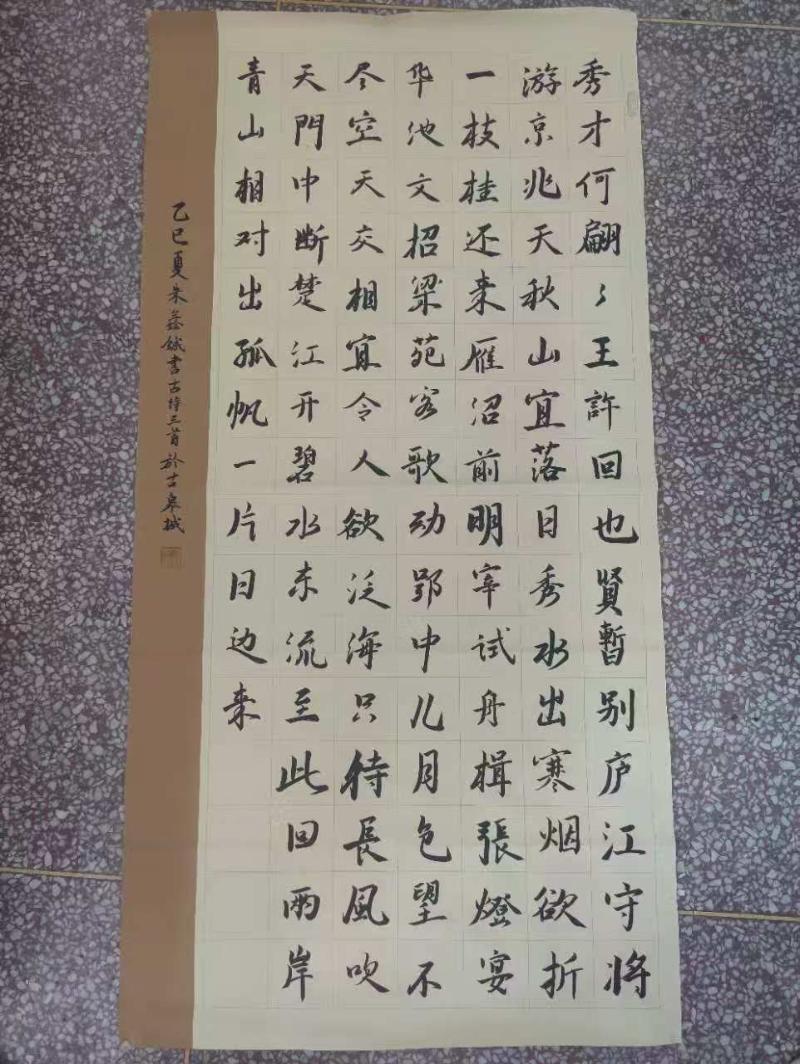 秀才何翩〻王許回也賢暫别庐江守将
游京兆天秋山宜落日秀水出寒烟欲折
一枝桂还来雁沼前明宰试舟楫張燈宴
华池文招梁苑客歌动郢中儿月色望不
尽空天交相宜令人欲泛海只待長風吹
天門中断楚江开碧水东流至此回兩岸
青山相对出孤帆一片日边来
乙巳夏朱鑫鉞書古诗三首於古皋城